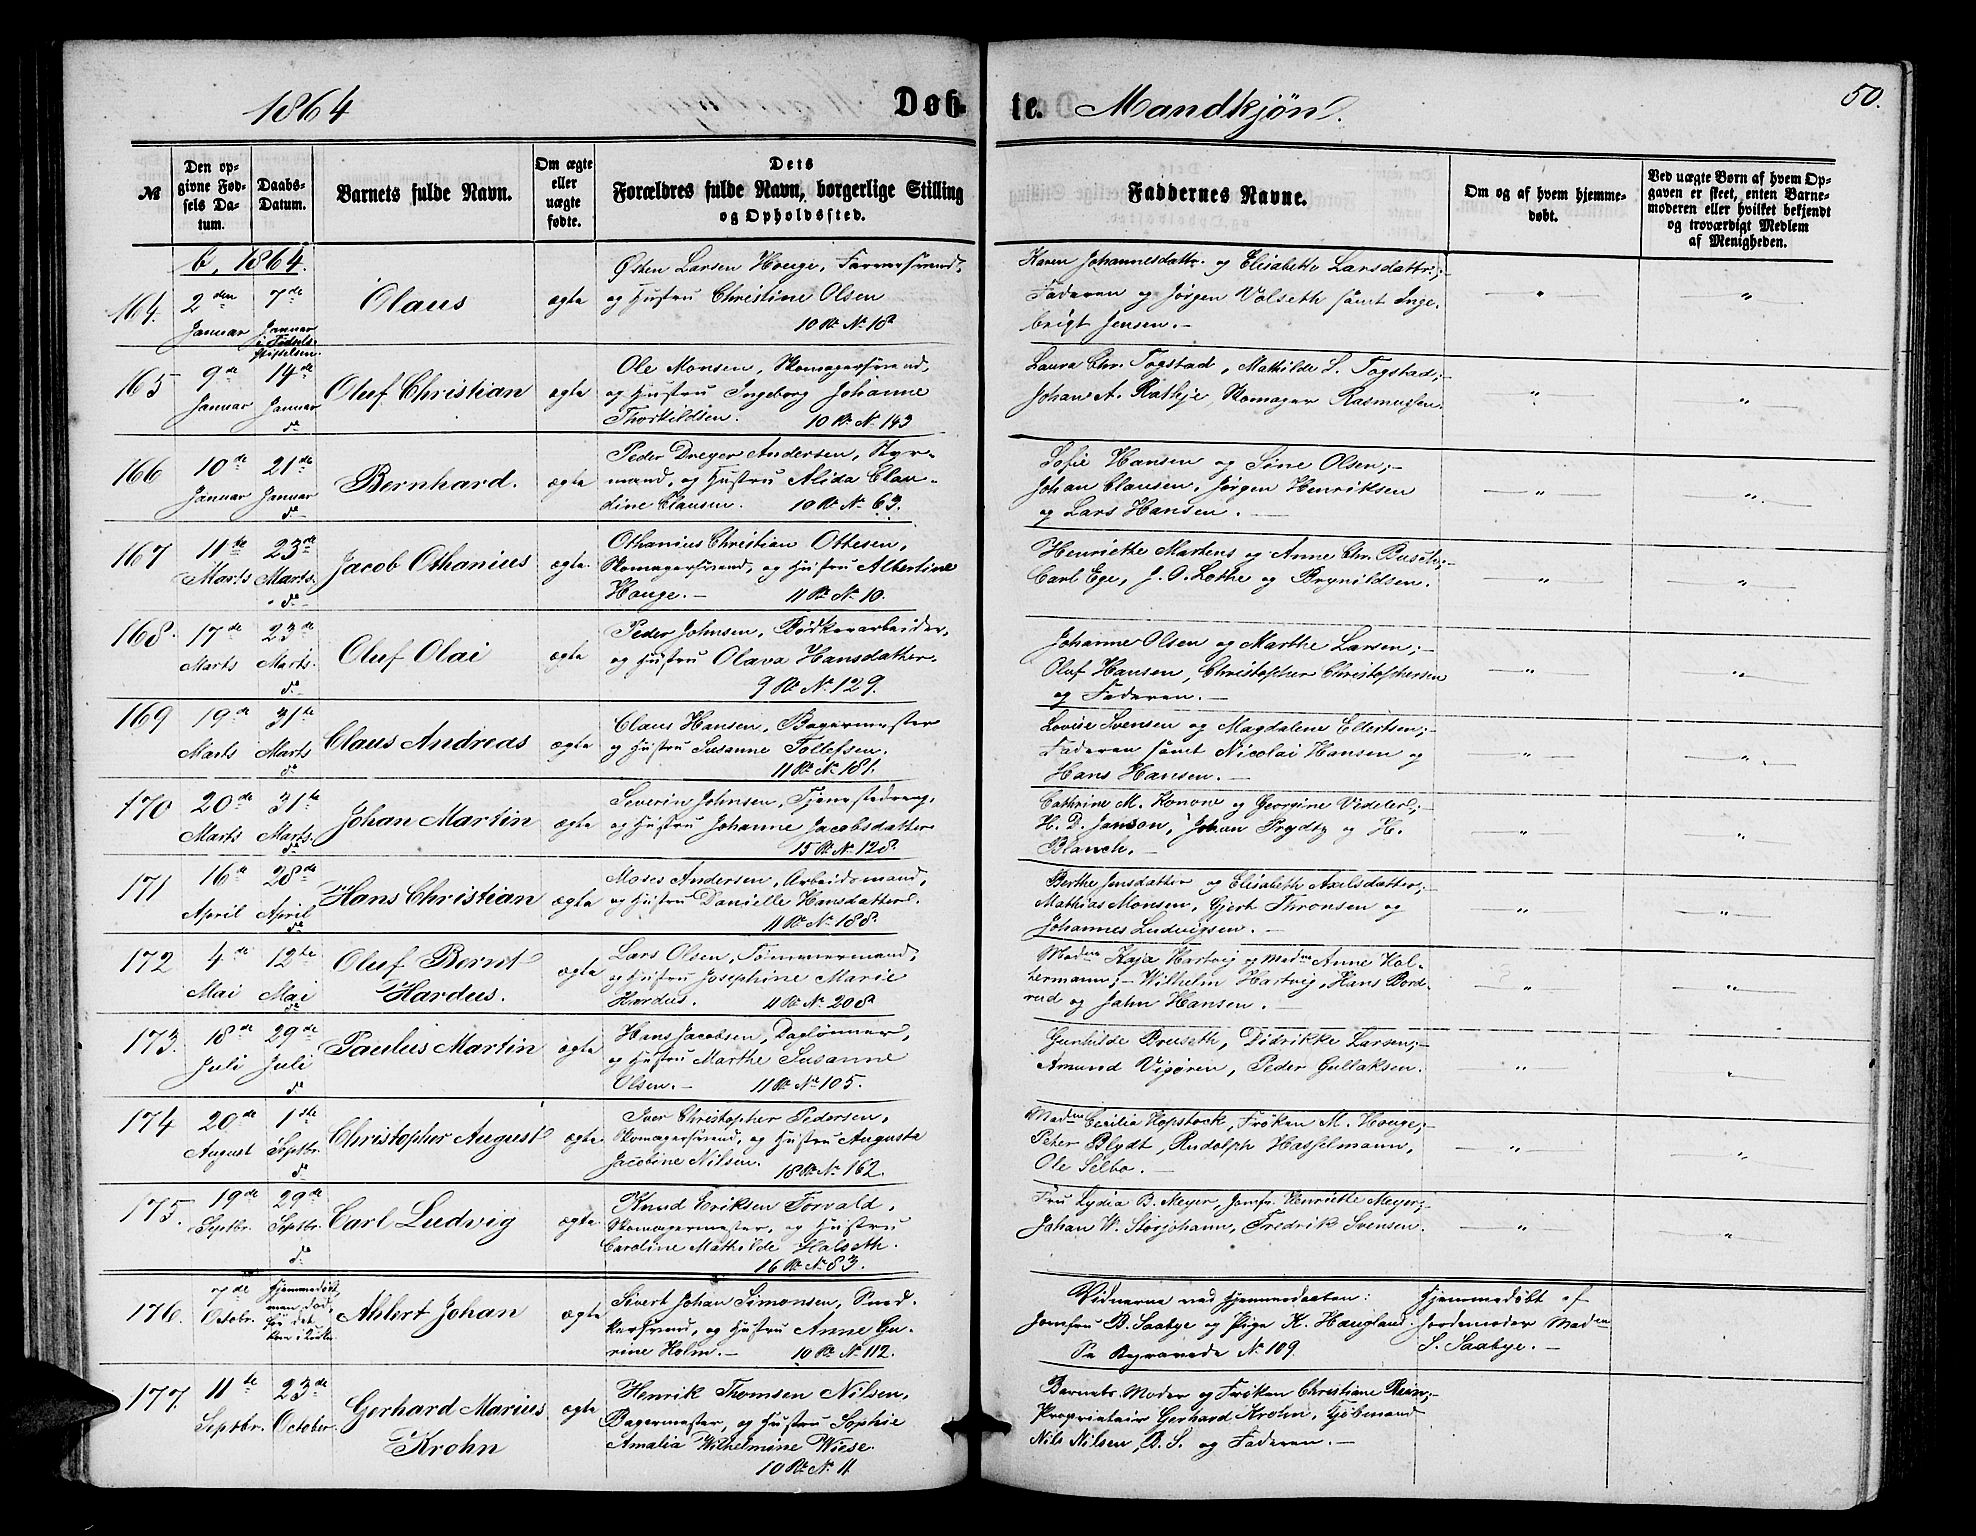 1864
Døb-
te.
Mandkjøn.
50.
№
Den op-
givne Fød-
sels Da-
tum.
Daabs-
Datum.
Barnets fulde Navn.
Om ægte
eller
uægte
fødte.
Dets
Forældres fulde Navn, borgerlige Stilling
og Opholdssted.
Faddernes Navne.
Om og af hvem hjemme-
døbt.
Ved uægte Børn af hvem Op-
gaven er skeet, enten Barne-
moderen eller hvilket bekjendt
og troværdigt Medlem
af Menigheden.
b, 1864.
164.
2den
Januar
7de
Januar
i Fødsels-
stiftelsen.
Olaus
ægte
Østen Larsen Houge, Farversvend,
og Hustru Christine Olsen
10 Rd. No 18
Karen Johannesdattr. og Elisabeth Larsdattr.;
Faderen og Jørgen Volseth samt Inge-
brigt Jensen.
165
9de
Januar
14de
Januar
do
Oluf Christian
ægte
Ole Monsen, Skomagersvend,
og Hustru Ingeborg Johanne
Thorkildsen.
10 Rd. No 143
Laura Chr. Togstad, Mathilde L. Togstad;
Johan A. Rathje, Skomager Rasmussen.
166
10de
Januar
21de
Januar
do
Bernhard.
ægte
Peder Dreyer Andersen, Styr-
mand, og Hustru Alida Clau-
dine Clausen.
10 Rd. No 63.
Sofie Hansen og Sine Olsen;-
Johan Clausen, Jørgen Henriksen
og Lars Hansen.
167
11te
Marts
23de
Marts.
do
Jacob Othanius
ægte.
Othanius Christian Ottesen,
Skomagersvend, og Hustru Albertine
Houge.-
11 Rd. No 10.
Henriette Martens og Anne Chr. Buseth;-
Carl Ege, J. O. Lothe og Brynildsen.
168.
17de
Marts
23de
Marts.
do
Oluf Olai
ægte
Peder Johnsen, Bødkerarbeider,
og Hustru Olava Hansdatter.
9 Rd. No 129.
Johanne Olsen og Marthe Larsen;-
Oluf Hansen, Christopher Christophersen
og Faderen.-
169
19de
Marts
31te
Marts
do
Claus Andreas
ægte
Claus Hansen, Bagermester
og Hustru Susanne Tollefsen.
11 Rd. No 181.
Lovise Svensen og Magdalene Ellertsen;-
Faderen samt Nicolai Hansen og
Hans Hansen.-
170
20de
Marts
31te
Marts.
do
Johan Martin
ægte
Severin Johnsen, Tjenestedreng,
og Hustru Johanne Jacobsdatter
15 Rd. No 128.
Cathrine M. Konow og Georgine Videler;-
H. D. Janson, Johan Prydtz og H.
Blanch.-
171
16de
April
28de
April
do
Hans Christian
ægte
Moses Andersen, Arbeidsmand,
og Hustru Danielle Hansdatter.
11 Rd. No 188.
Berthe Jensdatter og Elisabeth Axelsdatter;
Mathias Monsen, Gjert Thronsen og
Johannes Ludvigsen.-
172
4de
Mai
12te
Mai
do
Oluf Bernt
Hardus.
ægte
Lars Olsen, Tømmermand,
og Hustru Josephine Marie
Hardus.
11 Rd. No 208.
Madme Kaja Hartvig og Madme Anne Hol-
termann;- Wilhelm Hartvig, Hans Bord-
rud og Jahn Hansen.-
173.
18de
Juli
29de
Juli
do
Paulus Martin
ægte
Hans Jacobsen, Daglønner,
og Hustru Marthe Susanne
Olsen.-
11 Rd. No 105.
Gunhilde Bruseth, Didrikke Larsen;-
Amund Vigøren, Peder Gullaksen.
174
20de
August
1ste
Septbr.
do
Christopher August
ægte
Iver Christopher Pedersen,
Skomagersvend, og Hustru Augusta
Jacobine Nilsen.
18 Rd. No 162.
Madme Cecilia Hopstock, Frøken M. Houge;-
Peter Blydt, Rudolph Hasselmann,
Ole Selbo.-
175.
19de
Septbr.
29de
Septbr.
do
Carl Ludvig
ægte.
Knud Eriksen Torvald,
Skomagermester, og Hustru
Caroline Mathilde Halseth.
16 Rd. No 83.
Fru Lydia B. Meyer, Jomfr. Henriette Meyer;
Johan W. Storjohann, Fredrik Svensen.
176.
7de
Octobr.
Hjemmedøbt,
men død,
før det
kom i Kirke
Ahlert Johan
ægte
Sivert Johan Simonsen, Sned-
kersvend, og Hustru Anne Gu-
rine Holm.-
10 Rd. No 112.
Vidnerne ved Hjemmedaaben:
Jomfru B. Saabye og Pige K. Haugland.
Se Begravede No 109.
Hjemmedøbt af
Jordemoder Madme
S. Saabye.-
177.
11te
Septbr.
23de
October.
Gerhard Marius
Krohn
ægte
Henrik Thomsen Nilsen,
Bagermester, og Hustru Sophie
Amalia Wilhelmine Wiese.
10 Rd. No 11
Barnets Moder og Frøken Christiane Rein;-
Proprietair Gerhard Krohn, Kjøbmand
Nils Nilsen, B. S. og Faderen.-